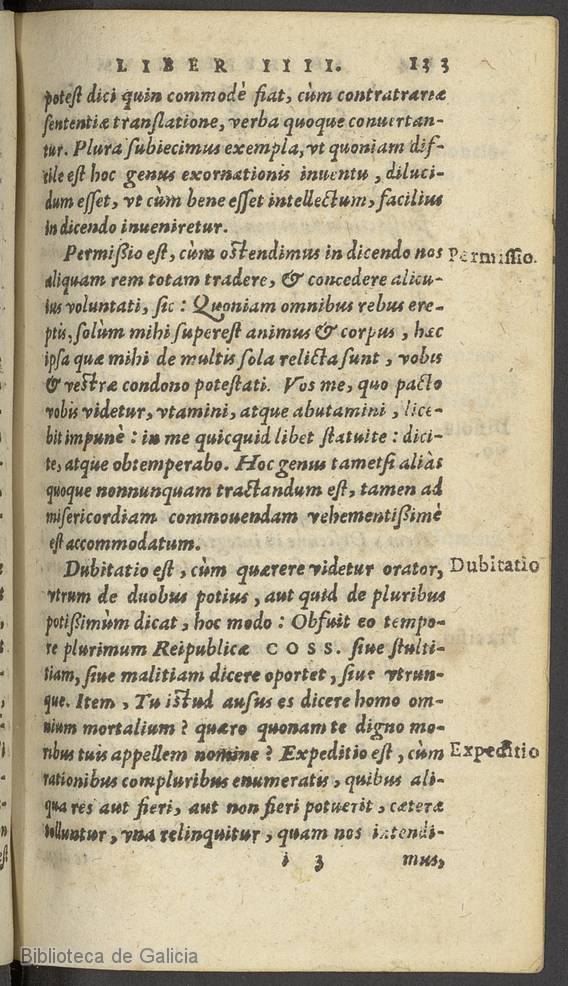 LIBER IIII. 133
potest dici quin commodè fiat, cùm contratrariæ
sententiæ translatione, verba quoque conuertan-
tur. Plura subiecimus exempla, vt quoniam dif-
cile est hoc genus exornationis inuentu, diluci-
dum esset, vt cùm bene esset intellectum, facilius
in dicendo inueniretur.
Permißio est, cùm ostendimus in dicendo nos Permissio.
aliquam rem totam tradere, & concedere alicu-
ius voluntati, sic: Quoniam omnibus rebus ere-
ptis, solùm mihi superest animus & corpus, hæc
ipsa quæ mihi de multis sola relicta sunt, vobis
& vestræ condono potestati. Vos me, quo pacto
vobis videtur, vtamini, atque abutamini, lice-
bit impunè: in me quicquid libet statuite: dici-
te, atque obtemperabo. Hoc genus tametsi aliàs
quoque nonnunquam tractandum est, tamen ad
misericordiam commouendam vehementißimè
est accommodatum.
Dubitatio est, cùm quærere videtur orator, Dubitatio
vtrum de duobus potius, aut quid de pluribus
potißimùm dicat, hoc modo: Obfuit eo tempo-
re plurimum Reipublicæ COSS. siue stulti-
tiam, siue malitiam dicere oportet, siue vtrun-
que. Item, Tu istud ausus es dicere homo om-
nium mortalium? quæro quonam te digno mo-
ribus tuis appellem nomine? Expeditio est, cùm Expeditio
rationibus compluribus enumeratis, quibus ali-
qua res aut fieri, aut non fieri potuerit, cæteræ
tolluntur, vna relinquitur, quam nos intendi-
i 3 mus,
Biblioteca de Galicia